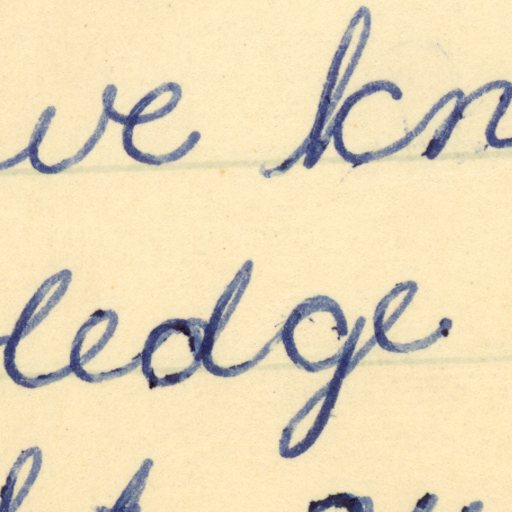 ve kn
ledge.